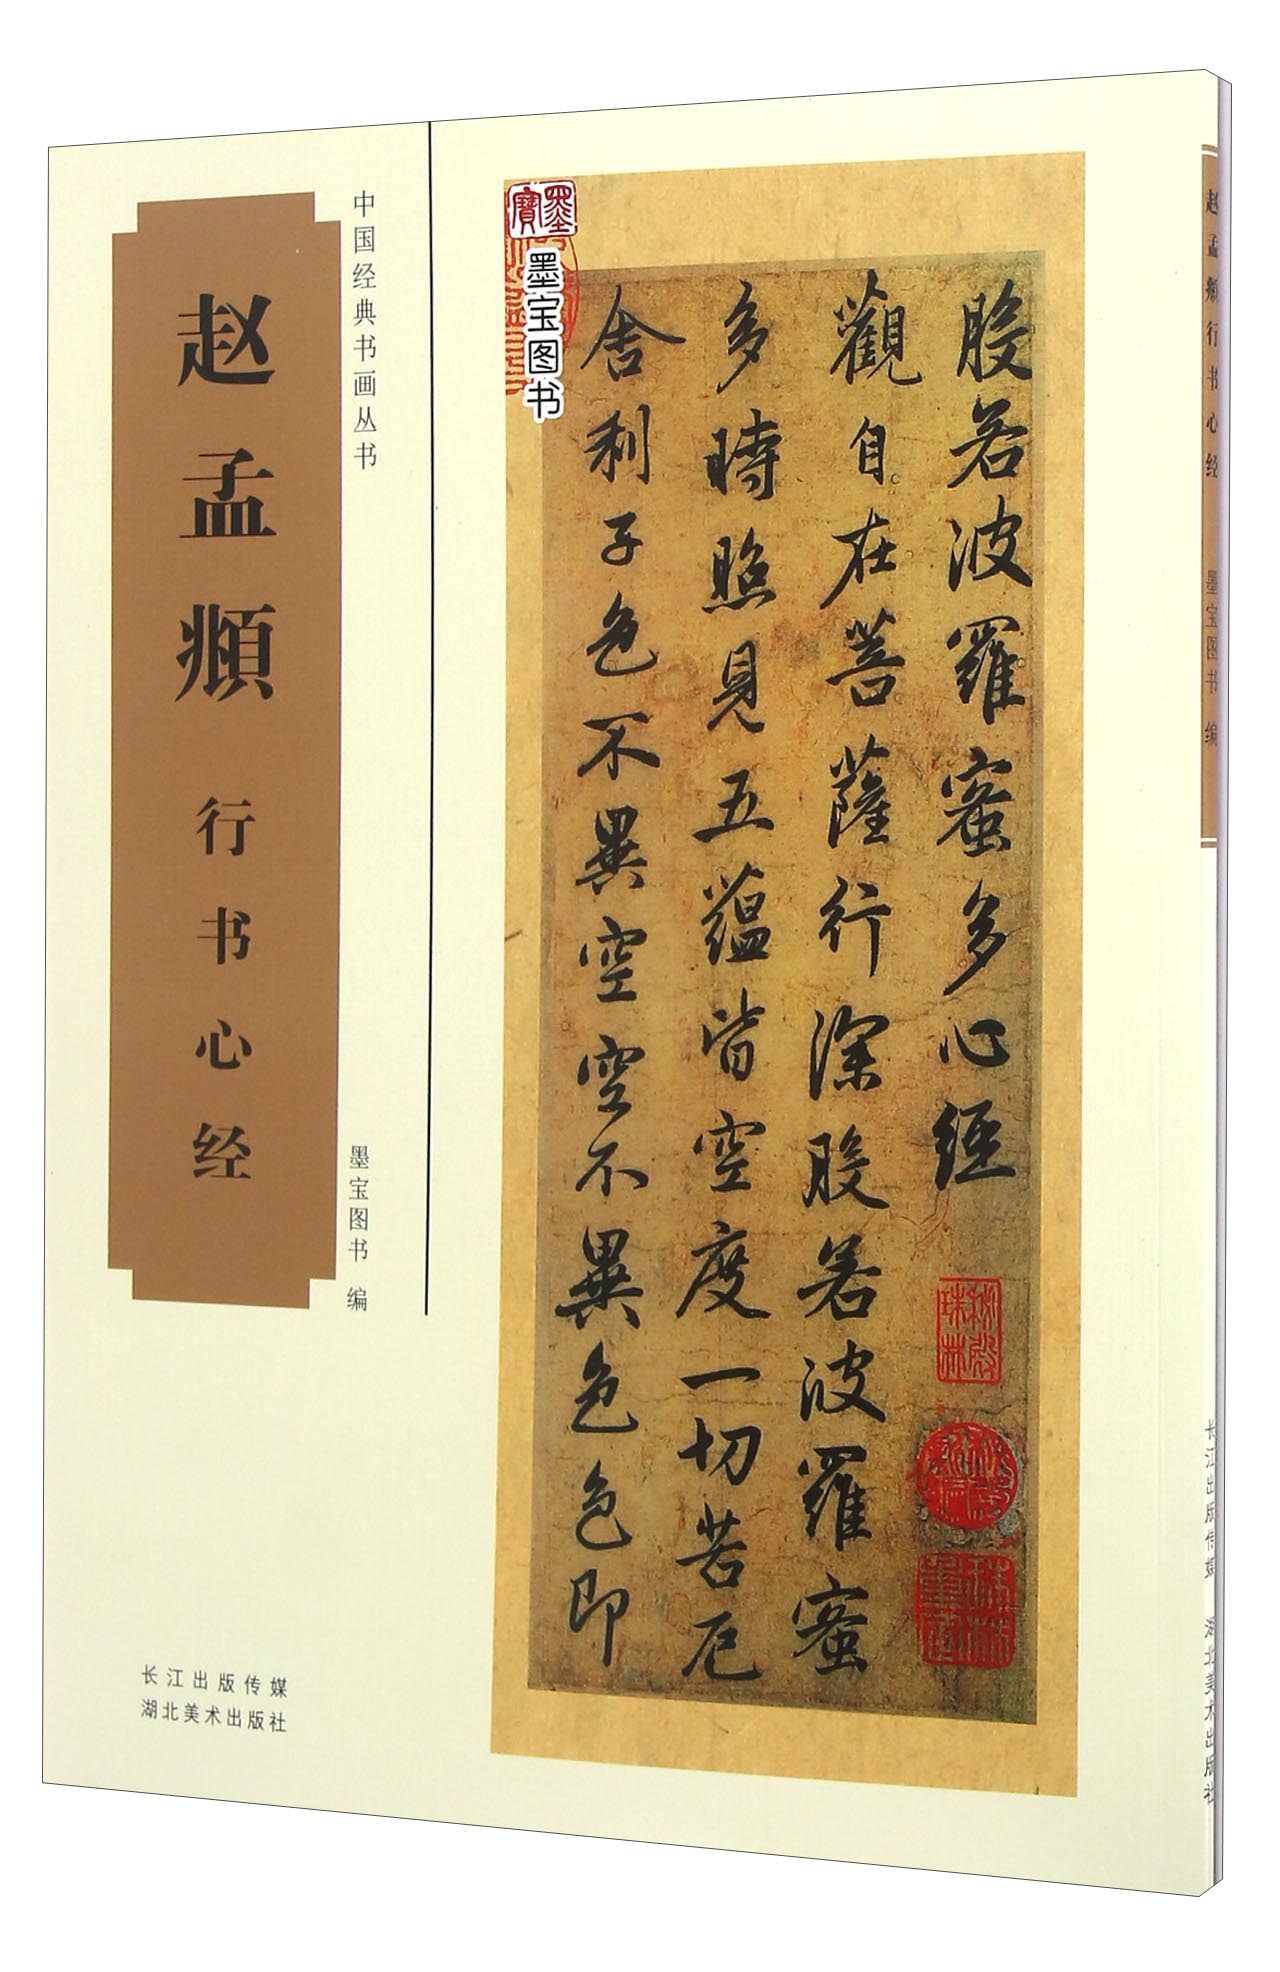 中国经典书画丛书
赵孟頫行书心经
墨宝图书 编
长江出版传媒
湖北美术出版社
墨寶
墨宝图书
般若波羅蜜多心經
觀自在菩薩行深般若波羅蜜
多時照見五蘊皆空度一切苦厄
舍利子色不異空空不異色色即
赵孟頫行书心经
墨宝图书 编
长江出版传媒
湖北美术出版社